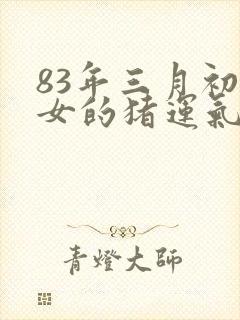 83年三月初
女的猪運氣
青燈大師